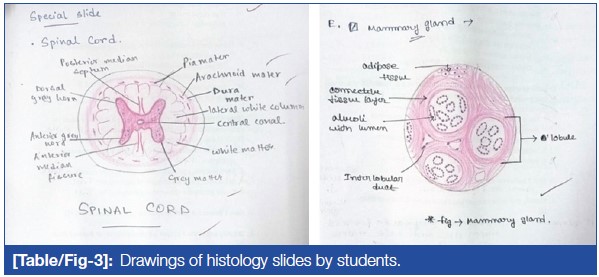 Special slide
• Spinal Cord.
Posterior median
septum
Piamater
Arachnoid mater
Dura
mater
Dorsal
grey horn
lateral white column
central canal
Anterior grey
horn
white matter
Anterior
median
fissure
Grey matter
SPINAL CORD
E. Mammary gland →
adipose
tissue
connective
tissue layer
alveoli
with lumen
lobule
Interlobular
duct
* fig → Mammary gland.
[Table/Fig-3]: Drawings of histology slides by students.